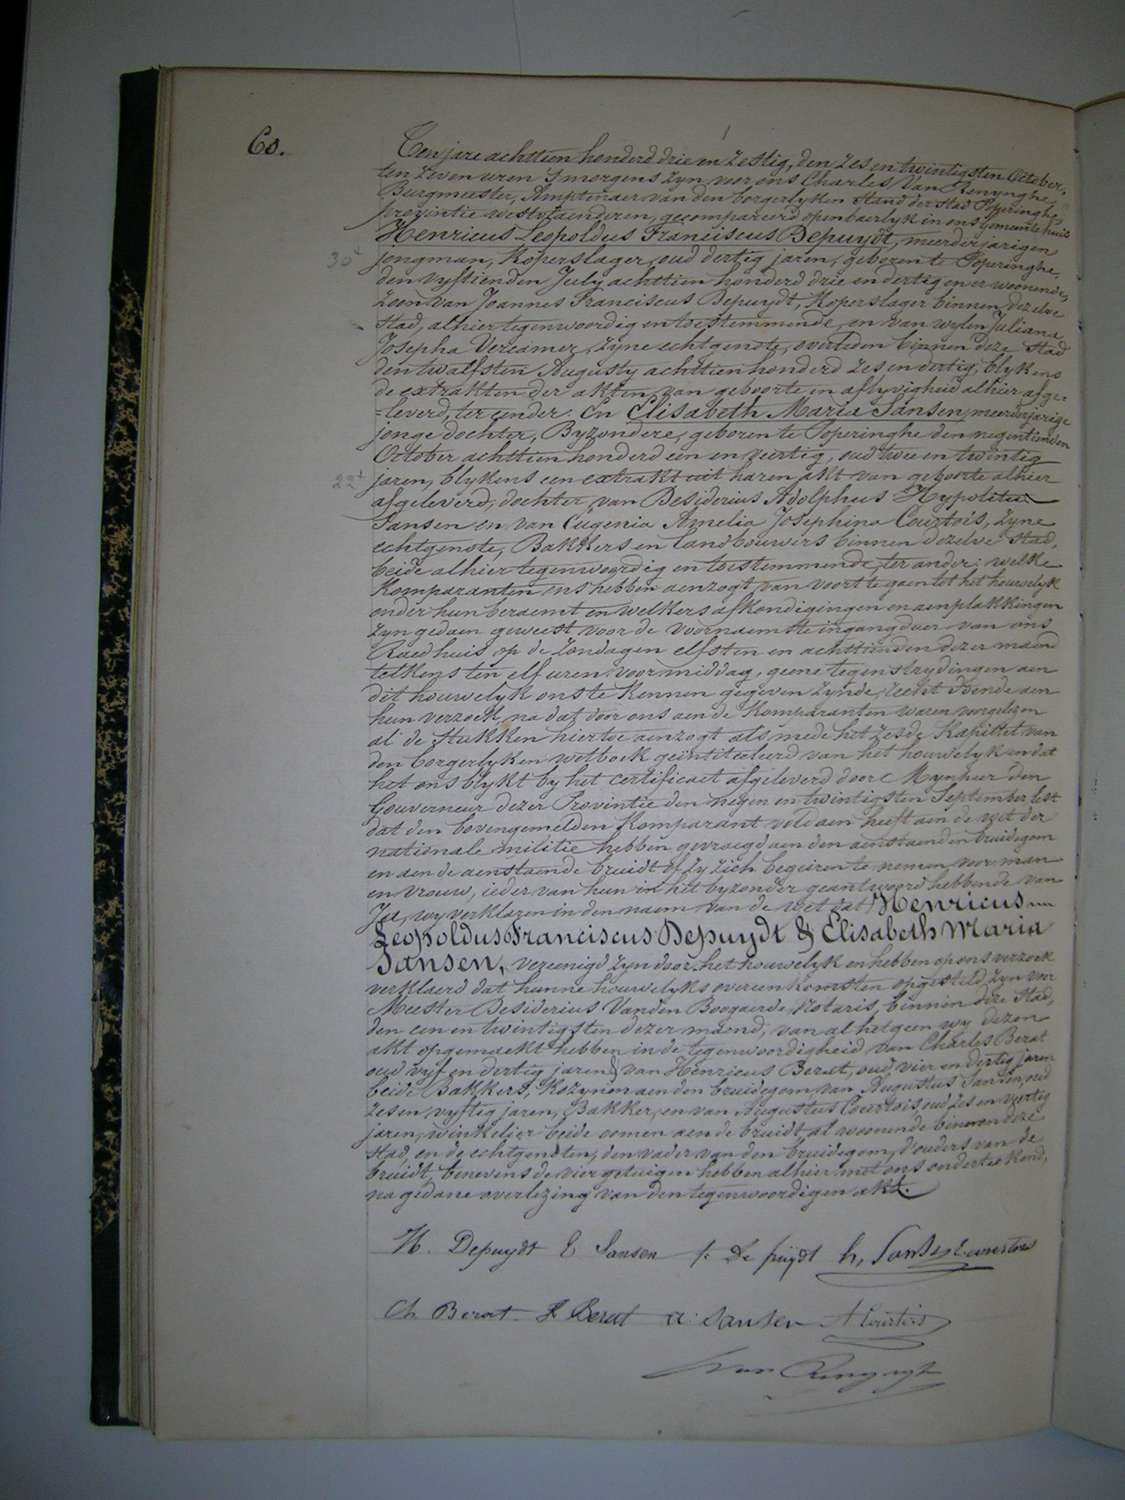 60.
Ten jare achttien honderd drie en zestig, den zes en twintigsten October,
ten zeven uren s'morgens zyn voor ons Charles Van Renynghe,
Burgmeester, Amptenaer van den borgerlyken stand der stad Poperinghe
provintie westvlaenderen, gecompareerd openbaerlyk in ons Gemeentehuis
Henricus Leopoldus Franciscus Depuydt, meerderjarigen
30
jongman, koperslager, oud dertig jaren, geboren te Poperinghe,
den vyftienden July achttien honderd drie en dertig en er woonende,
zoon van Joannes Franciscus Depuydt, koperslager binnen dezelve
stad, alhier tegenwoordig en toestemmende, en van wylen Juliana
Josepha Vercamer, zyne echtgenote, overleden binnen deze stad
den twalfsten Augusty achttien honderd zes en dertig, blykens
de extrakten der akten van geboorte en aflyvigheid alhier afge-
=leverd, ter eender: En Elisabeth Maria Sansen, meerderjarige
jonge dochter, Byzondere, geboren te Poperinghe den negentienden
October achttien honderd een en veertig, oud twee en twintig
22
jaren, blykens een extrakt uit haren akt van geboorte alhier
afgeleverd, dochter van Desiderius Adolphus Hypolitus
Sansen en van Eugenia Amelia Josephina Courtois, zyne
echtgenote, Bakkers en landbouwers binnen dezelve stad,
beide alhier tegenwoordig en toestemmende, ter ander: welke
komparanten ons hebben aenzogt van voort te gaen tot het houwelyk
onder hun beraemt en welkers afkondigingen en aenplakkingen
zyn gedaen geweest voor de voornaemste ingangdeur van ons
Raedhuis op de zondagen elfsten en achttienden dezer maend
telkens ten elf uren voormiddag, geene tegenstrydingen aen
dit houwelyk ons te kennen gegeven zynde, recht doende aen
hun verzoek, na dat door ons aen de komparanten waren voorgelezen
al de stukken hiertoe aenzogt als mede het zesde kapittel van
den borgerlyken wetboek geïntituleerd van het houwelyk en dat
het ons blykt by het certificaet afgeleverd door Mynheer den
Gouverneur dezer Provintie den negen en twintigsten September lest
dat den bovengemelden komparant voldaen heeft aen de wet der
nationale militie hebben gevraegd aen den aenstaenden bruidegom
en aen de aenstaende bruidt of zy zich begeiren te nemen voor man
en vrouw, ieder van hun in het byzonder geantwoord hebbende van
Ja, wy verklaren in den naem van de wet dat Henricus
Leopoldus Franciscus Depuydt & Elisabeth Maria
Sansen, vereenigd zyn door het houwelyk en hebben op ons verzoek
verklaerd dat hunne houwelyks overeenkomsten opgesteld zyn voor
Meester Desiderius Vanden Boogaerde, Notaris, binnen deze stad,
den een en twintigsten dezer maend, van al hetgeen wy dezen
akt opgemaekt hebben in de tegenwoordigheid van Charles Berat
oud vyf en dertig jaren, & van Henricus Berat, oud vier en dertig jaren
beide Bakkers, kozynen aen den bruidegom, van Augustus Sansen, oud
zes en vyftig jaren, Bakker, en van Augustus Courtois, oud zes en veertig
jaren, winkelier beide oomen aen de bruidt, al woonende binnen deze
stad, en de echtgenoten, den vader van den bruidegom, d'ouders van de
bruidt, benevens de vier getuigen hebben alhier met ons onderteekend,
na gedane overlezing van den tegenwoordigen akt.
H. Depuydt E Sansen f: De puÿdt h, Sansen E courtois
Ch Berat H Berat a: Sansen A Courtois
Van Renynghe